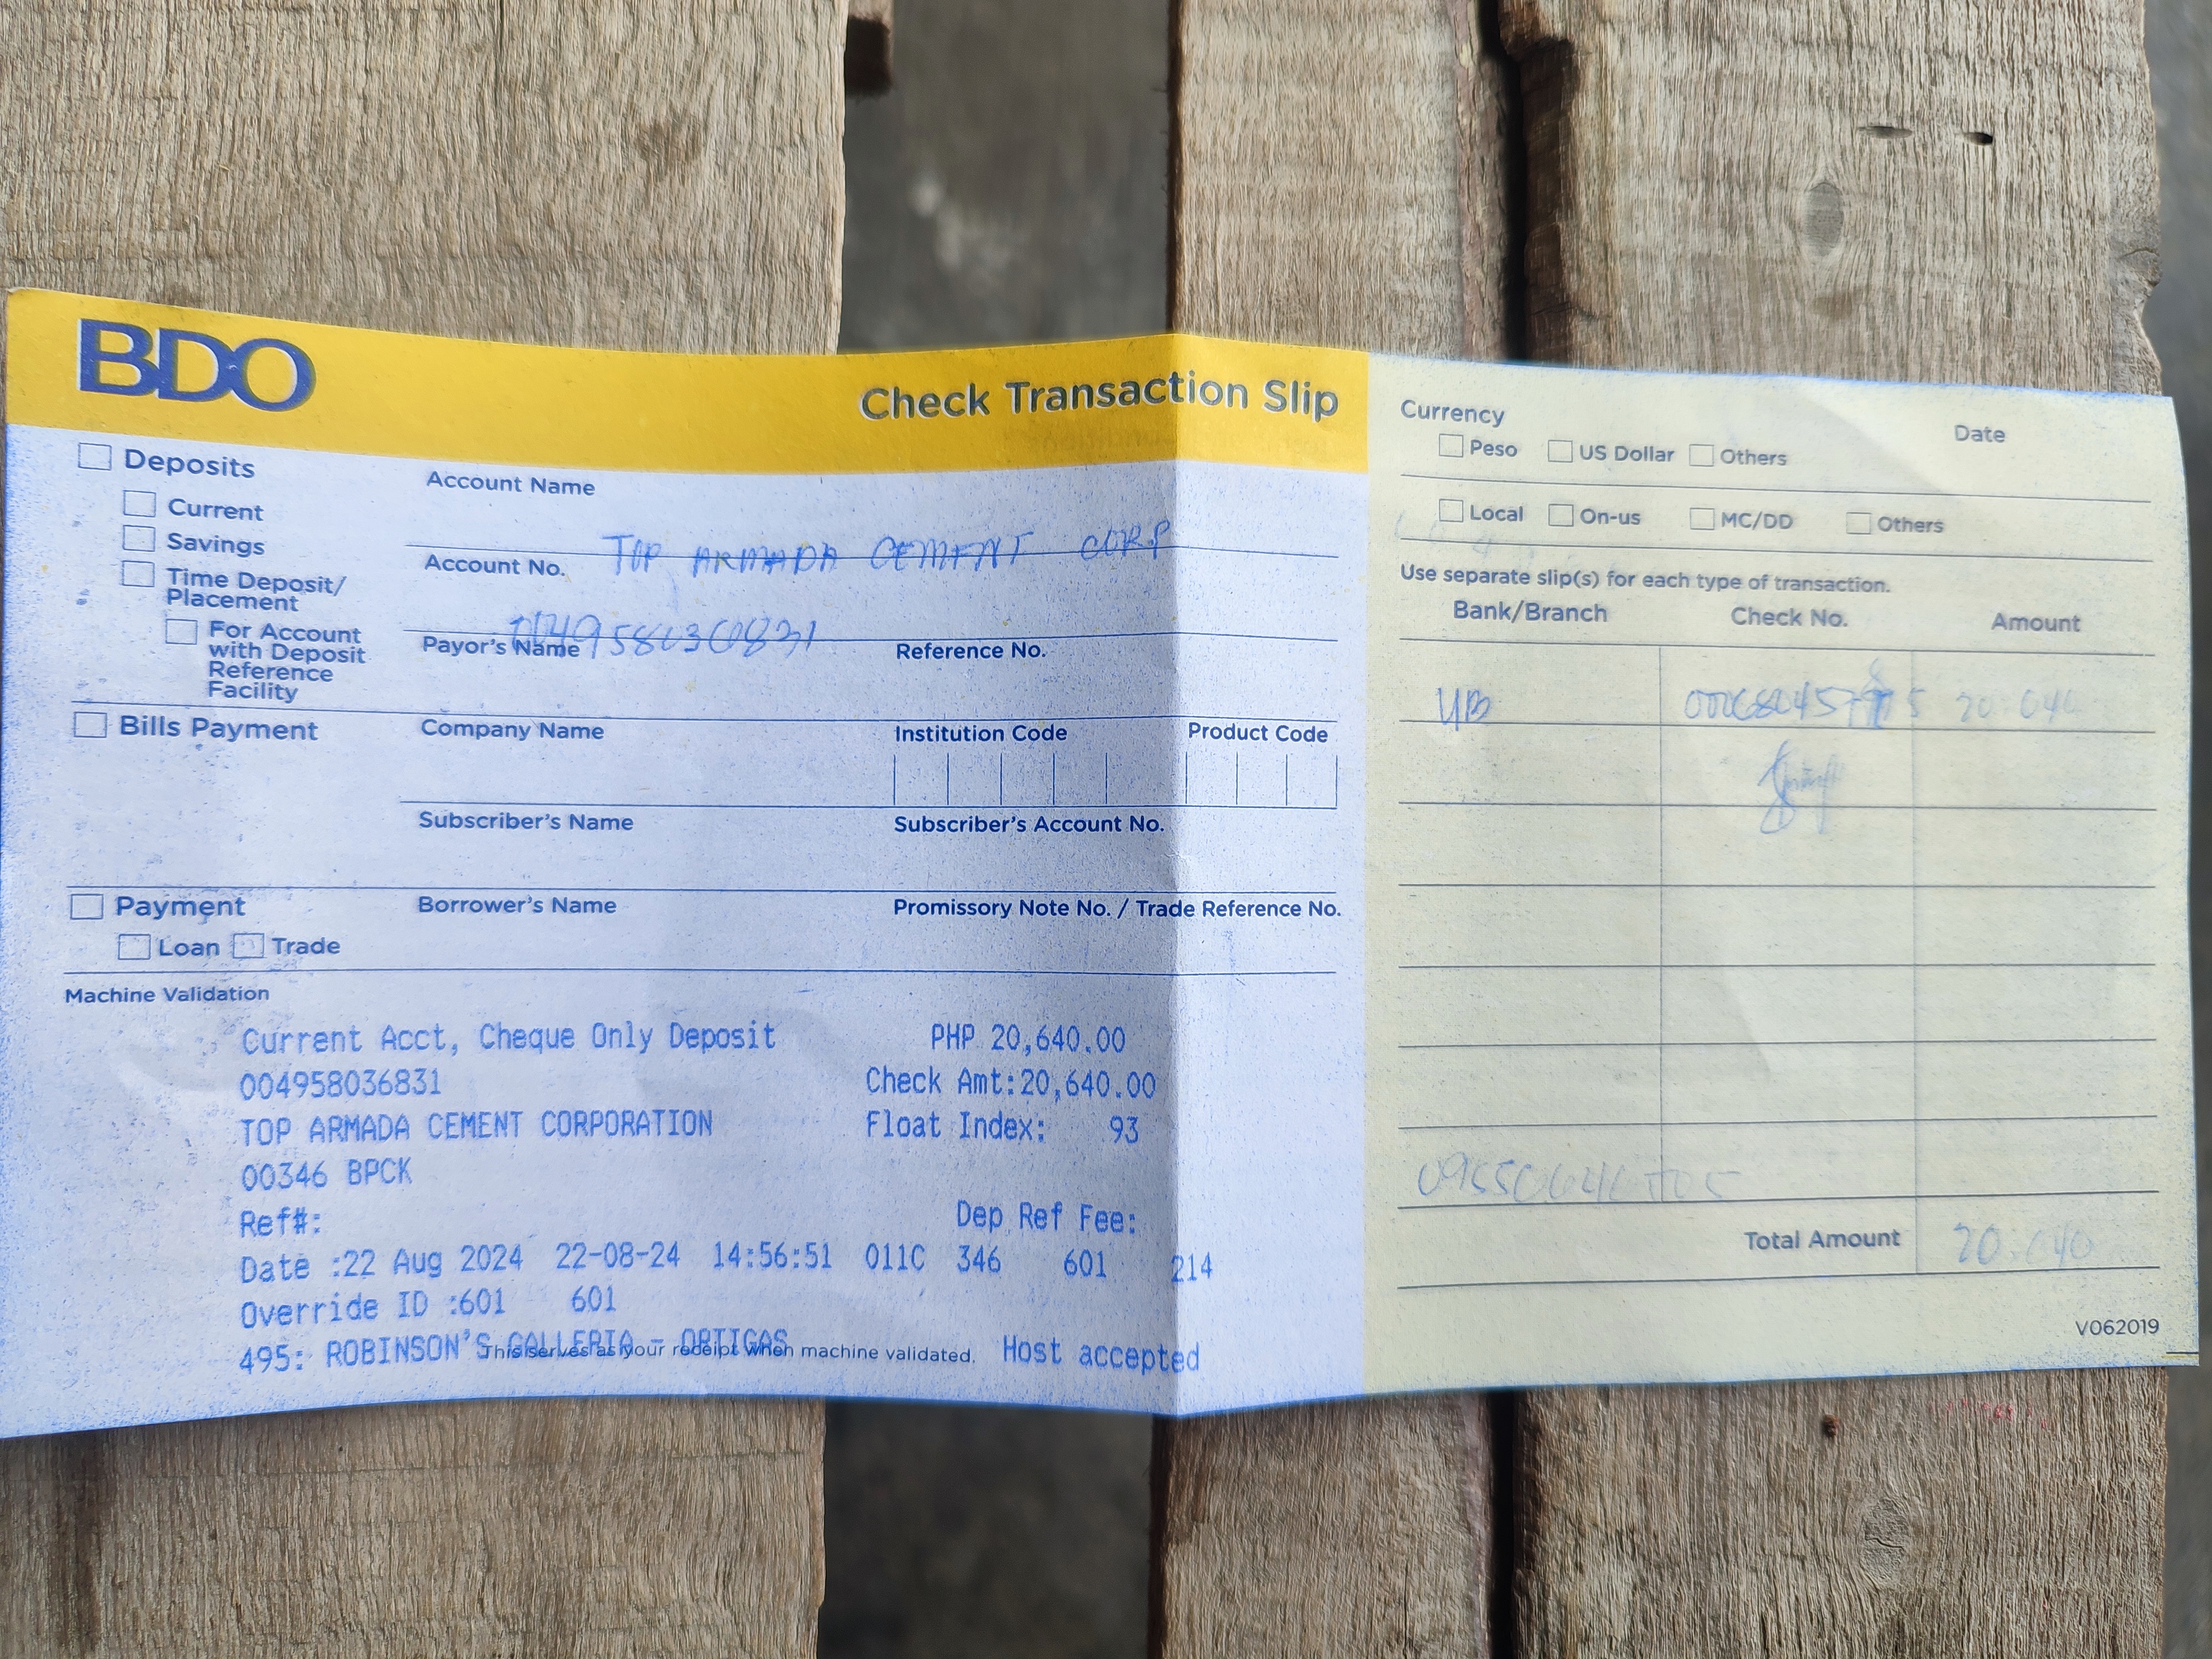 BDO
Check Transaction Slip
Deposits
Current
Savings
Time Deposit/
Placement
For Account
with Deposit
Reference
Facility
Account Name
TOP ARMADA CEMENT CORP
Account No.
Payor's Name
Reference No.
Bills Payment
Company Name
Institution Code
Product Code
Subscriber's Name
Subscriber's Account No.
Payment
Loan
Trade
Borrower's Name
Promissory Note No. / Trade Reference No.
Machine Validation
Current Acct, Cheque Only Deposit PHP 20,640.00
004958036831 Check Amt:20,640.00
TOP ARMADA CEMENT CORPORATION Float Index: 93
00346 BPCK
Ref#: Dep Ref Fee:
Date :22 Aug 2024 22-08-24 14:56:51 011C 346 601 214
Override ID :601 601
495: ROBINSON'S GALLERIA - ORTIGAS Host accepted
This serves as your receipt when machine validated.
Currency
Date
Peso US Dollar Others
Local On-us MC/DD Others
Use separate slip(s) for each type of transaction.
Bank/Branch Check No. Amount
UB 20.640
Total Amount 20.640
V062019